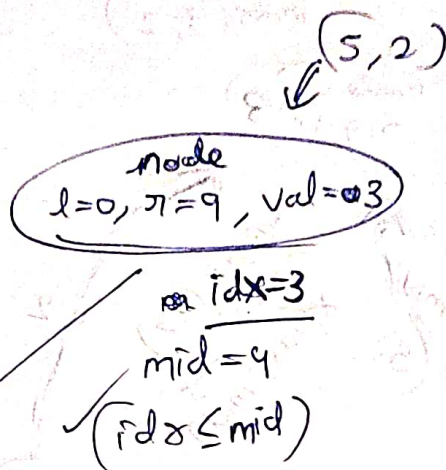 (5,2)
node
l=0, r=9, val=3
idx=3
mid=4
(idx≤mid)